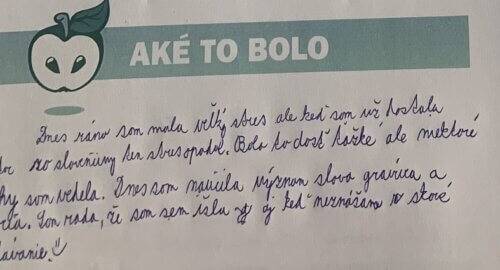 AKÉ TO BOLO
Dnes ráno som mala veľký stres ale keď som už dostala
zo slovenčiny ten stres opadol. Bolo to dosť ťažké ale niektoré
som vedela. Dnes som naučila význam slova gravúra a
Som rada, že som sem išla aj keď neznášam